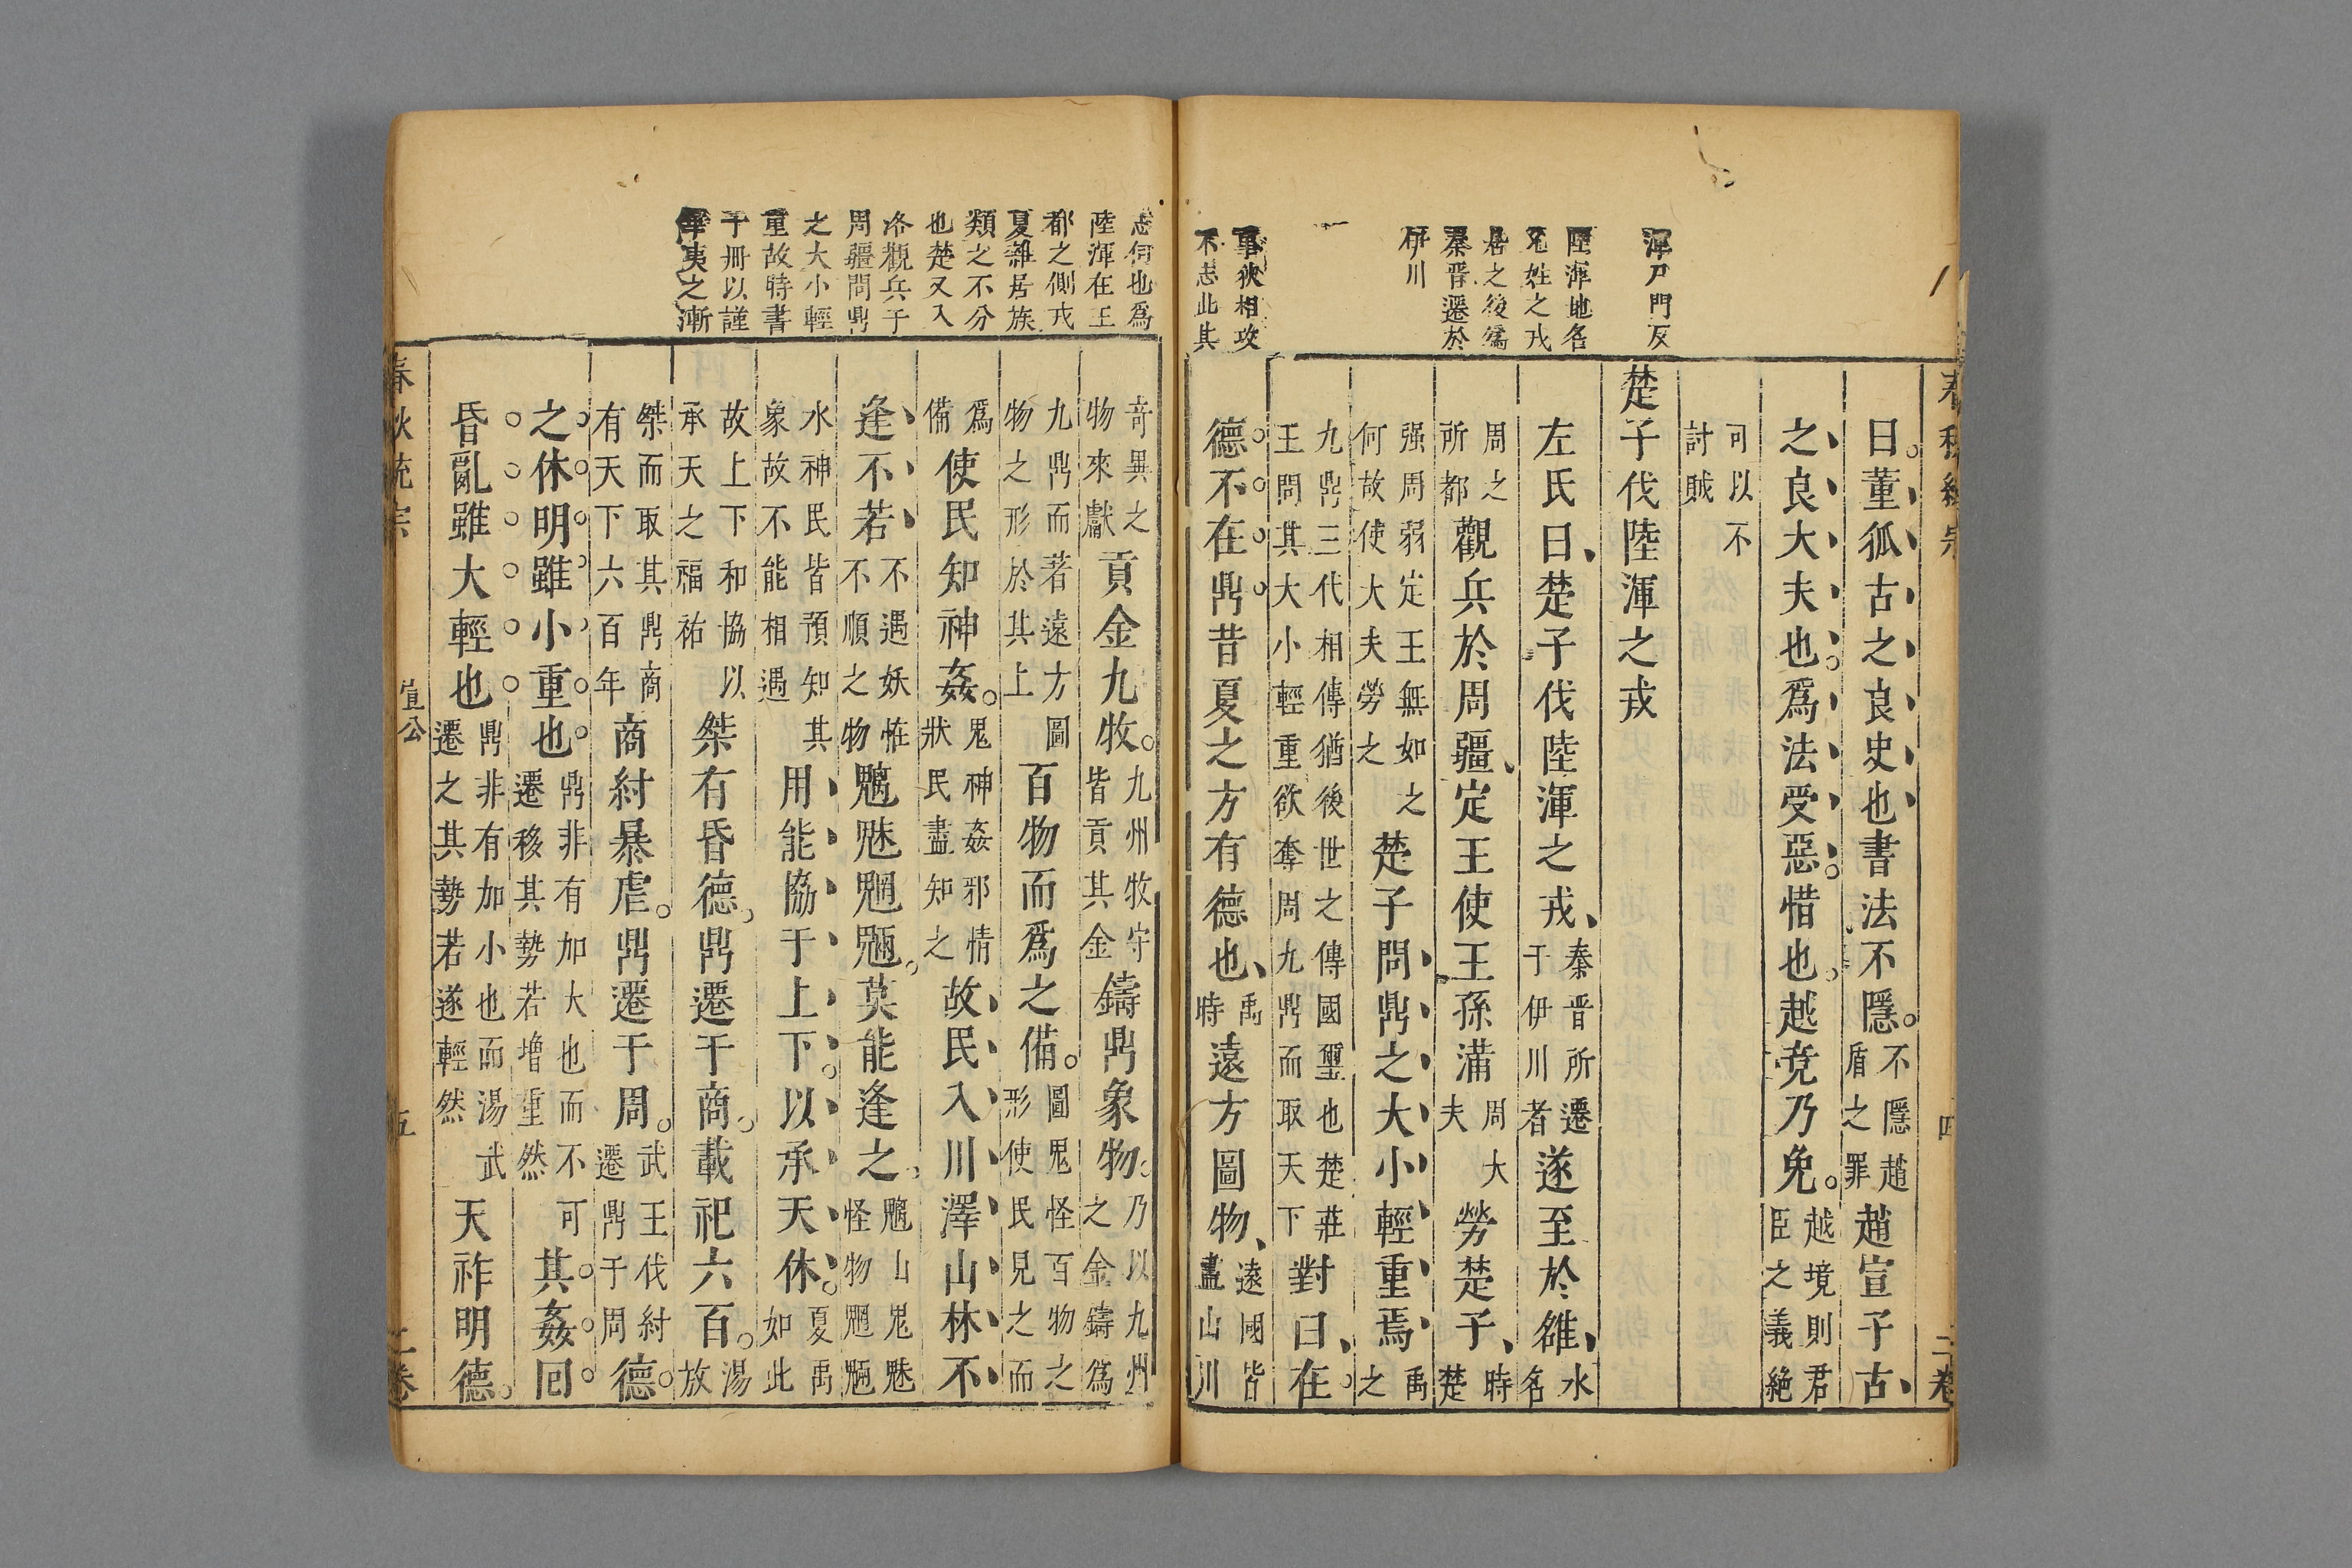 渾戸門反
陸渾地名
允姓之戎
居之後爲
秦晋遷於
伊川
事狄相攻
不志此其
曰董狐古之良史也書法不隱不隱趙盾之罪趙宣子古
之良大夫也爲法受惡惜也越竟乃免越境則君臣之義絶
可以不討賊
楚子伐陸渾之戎
左氏曰楚子伐陸渾之戎秦晋所遷于伊川者遂至於雒水名
周之所都觀兵於周疆定王使王孫滿周大夫勞楚子時楚
强周弱定王無如之何故使大夫勞之楚子問鼎之大小輕重焉禹之
九鼎三代相傳猶後世之傳國璽也楚莊王問其大小輕重欲奪周九鼎而取天下對曰在
德不在鼎昔夏之方有德也禹時遠方圖物遠國皆畫山川
春秋統宗
四
二卷
志何也爲
陸渾在王
都之側戎
夏雜居族
類之不分
也楚又入
洛觀兵于
周疆問鼎
之大小輕
重故特書
于冊以謹
華夷之漸
奇異之物來獻貢金九牧九州牧守皆貢其金鑄鼎象物乃以九州之金鑄爲
九鼎而著遠方圖物之形於其上百物而爲之備圖鬼怪百物之形使民見之而
爲備使民知神姦鬼神姦邪情狀民盡知之故民入川澤山林不
逢不若不遇妖怪不順之物魑魅魍魎莫能逢之魑山鬼魅怪物魍魎
水神民皆預知其象故不能相遇用能協于上下以承天休夏禹如此
故上下和協以承天之福祐桀有昏德鼎遷于商載祀六百湯放
桀而取其鼎商有天下六百年商紂暴虐鼎遷于周武王伐紂遷鼎于周德
之休明雖小重也鼎非有加大也而不可遷移其勢若增重然其姦回
昏亂雖大輕也鼎非有加小也而湯武遷之其勢若遂輕然天祚明德
春秋統宗
宣公
五
二卷